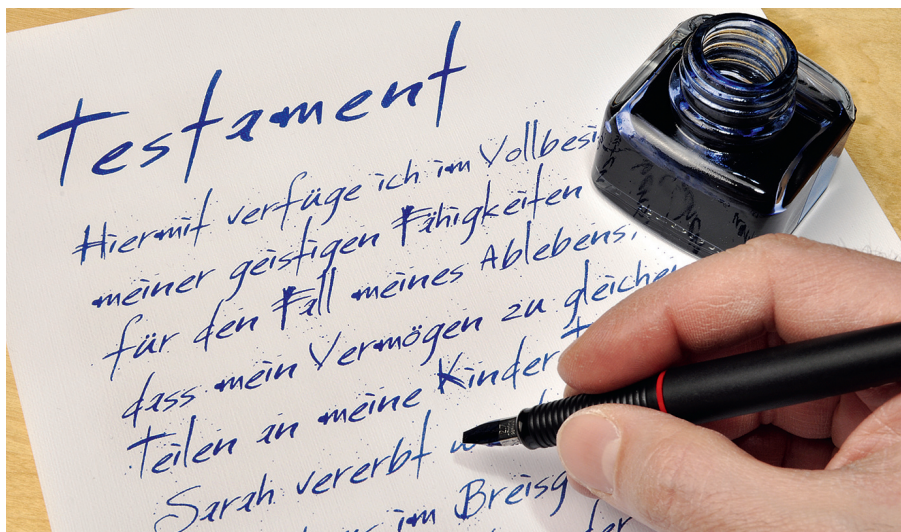 Testament
Hiermit verfüge ich im Vollbesi
meiner geistigen Fähigkeiten
für den Fall meines Ablebens,
dass mein Vermögen zu gleichen
Teilen an meine Kinder T
Sarah vererbt
im Breisg